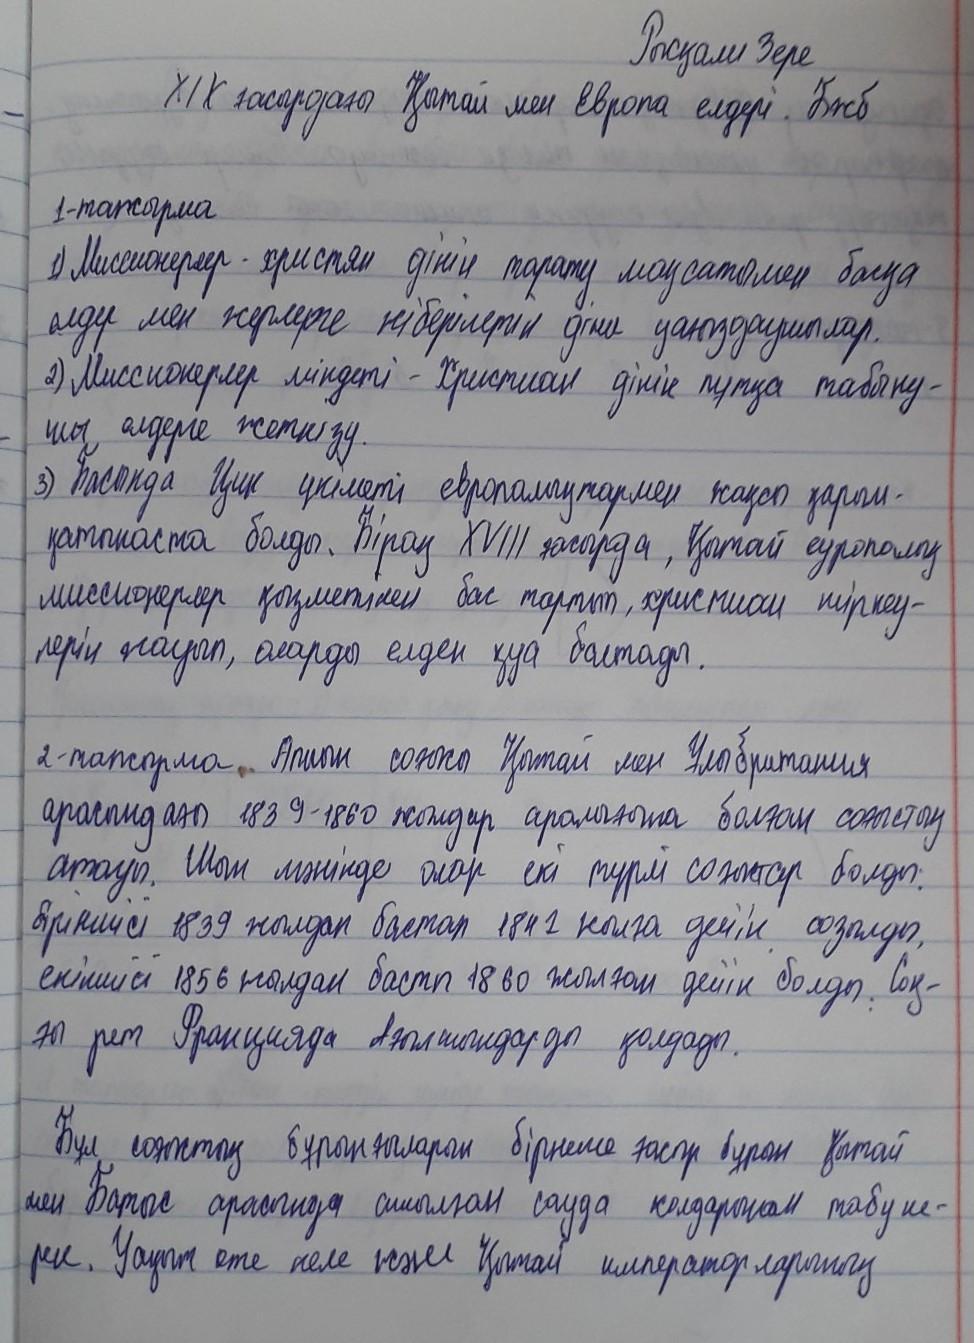 Рысқали Зере
XIX ғасырдағы Қытай мен Европа елдері. Бжб
1-тапсырма
1) Миссионерлер - христян дінін тарату мақсатымен басқа
елдер мен жерлерге жіберілетін діни уағыздаушылар.
2) Миссионерлер міндеті - Христиан дінін путқа табыну-
шы елдерге жеткізу.
3) Басында Цин үкіметі европалықтармен жақсы қарым-
қатынаста болды. Бірақ XVIII ғасырда, Қытай еуропалық
миссионерлер қызметінен бас тартып, христиан шіркеу-
лерін жауып, оларды елден қуа бастады.
2-тапсырма. Апиын соғысы Қытай мен Ұлыбритания
арасындағы 1839-1860 жылдар аралығына болған соғыстың
атауы. Шын мәнінде олар екі түрлі соғыстар болды:
Біріншісі 1839 жылдан бастап 1842 жылға дейін созылды,
екіншісі 1856 жылдан басты 1860 жылған дейін болды. Соң-
ғы рет Францияда Ағылшындарды қолдады.
Бұл соғыстың бұрынғыларын бірнеше ғасыр бұрын Қытай
мен Батыс арасында ашылған сауда жолдарынан табу ке-
рек. Уақыт өте келе және Қытай императорларының